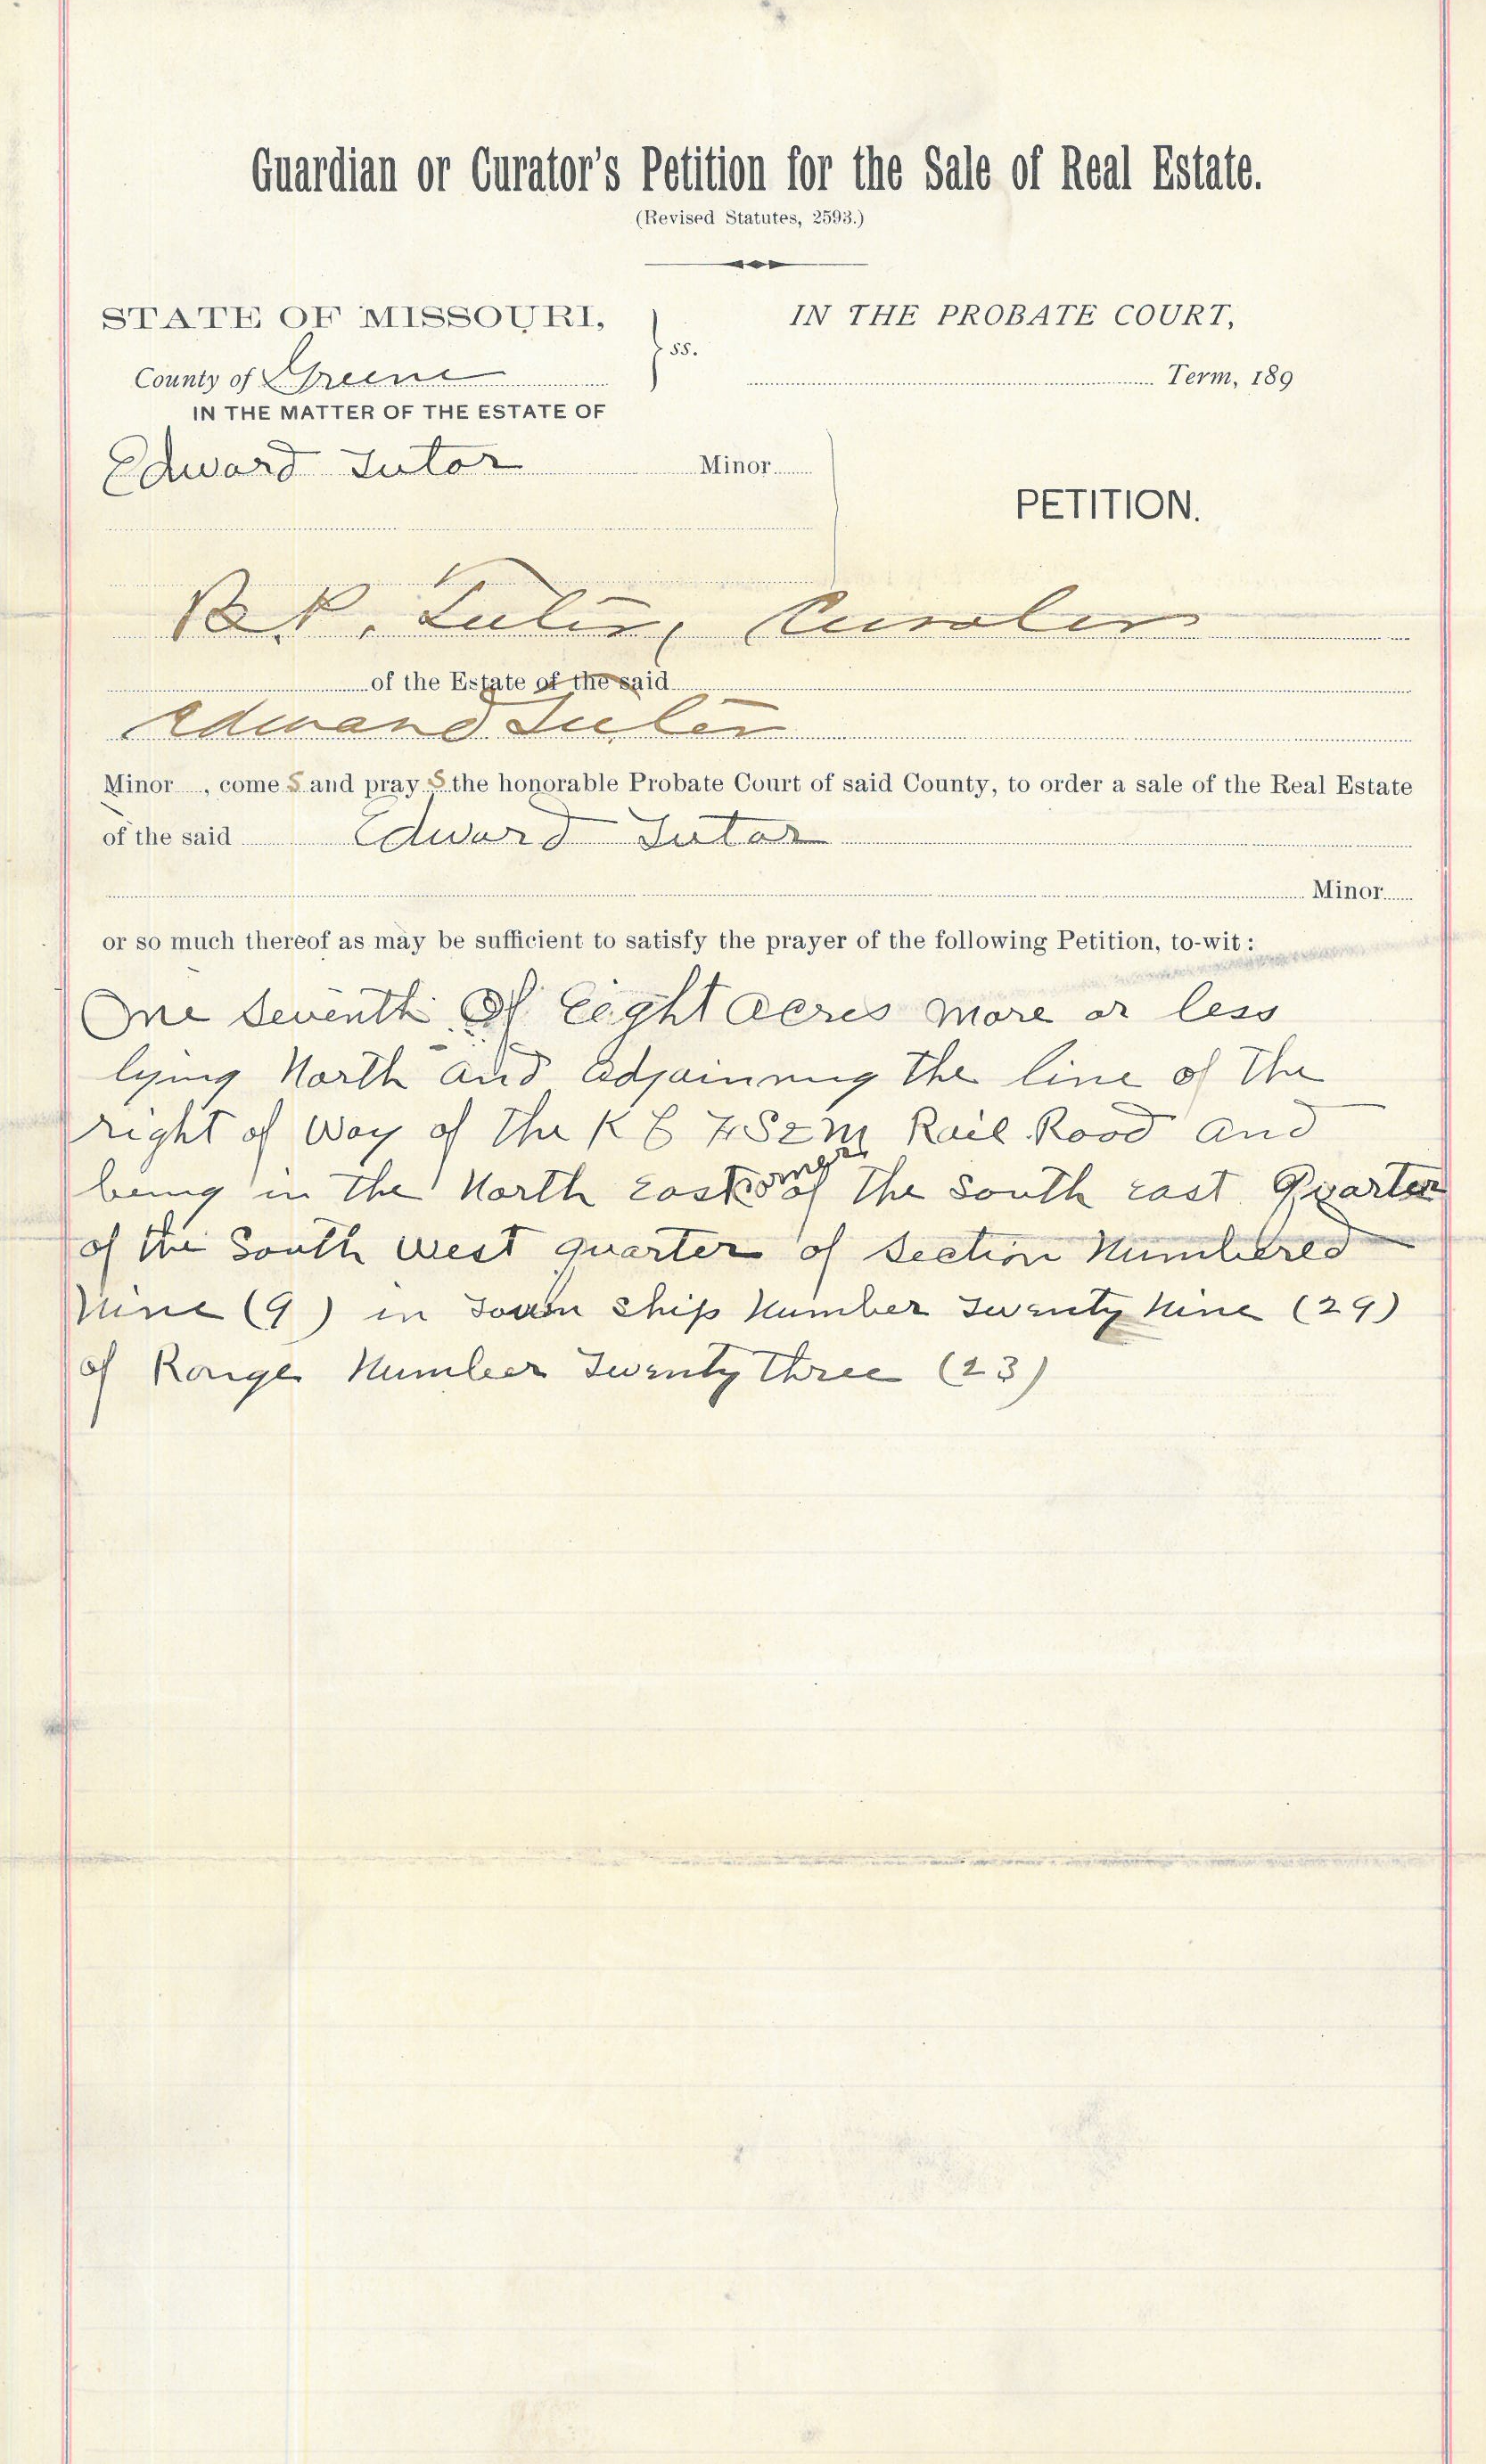 Guardian or Curator's Petition for the Sale of Real Estate.
(Revised Statutes, 2593.)
STATE OF MISSOURI, } ss. IN THE PROBATE COURT,
County of Greene Term, 189
IN THE MATTER OF THE ESTATE OF
Edward Tutor Minor
PETITION.
B. P. Tutor, Curator
of the Estate of the said
Edward Tutor
Minor , come s and pray s the honorable Probate Court of said County, to order a sale of the Real Estate
of the said Edward Tutor
Minor
or so much thereof as may be sufficient to satisfy the prayer of the following Petition, to-wit:
One Seventh Of Eight Acres more or less
lying North and adjoinning the line of the
right of Way of the K C F S & M Rail Road and
being in the North East corner of the South east Quarter
of the South West quarter of Section Numbered
Nine (9) in Town Ship Number Twenty Nine (29)
of Range Number Twenty three (23)